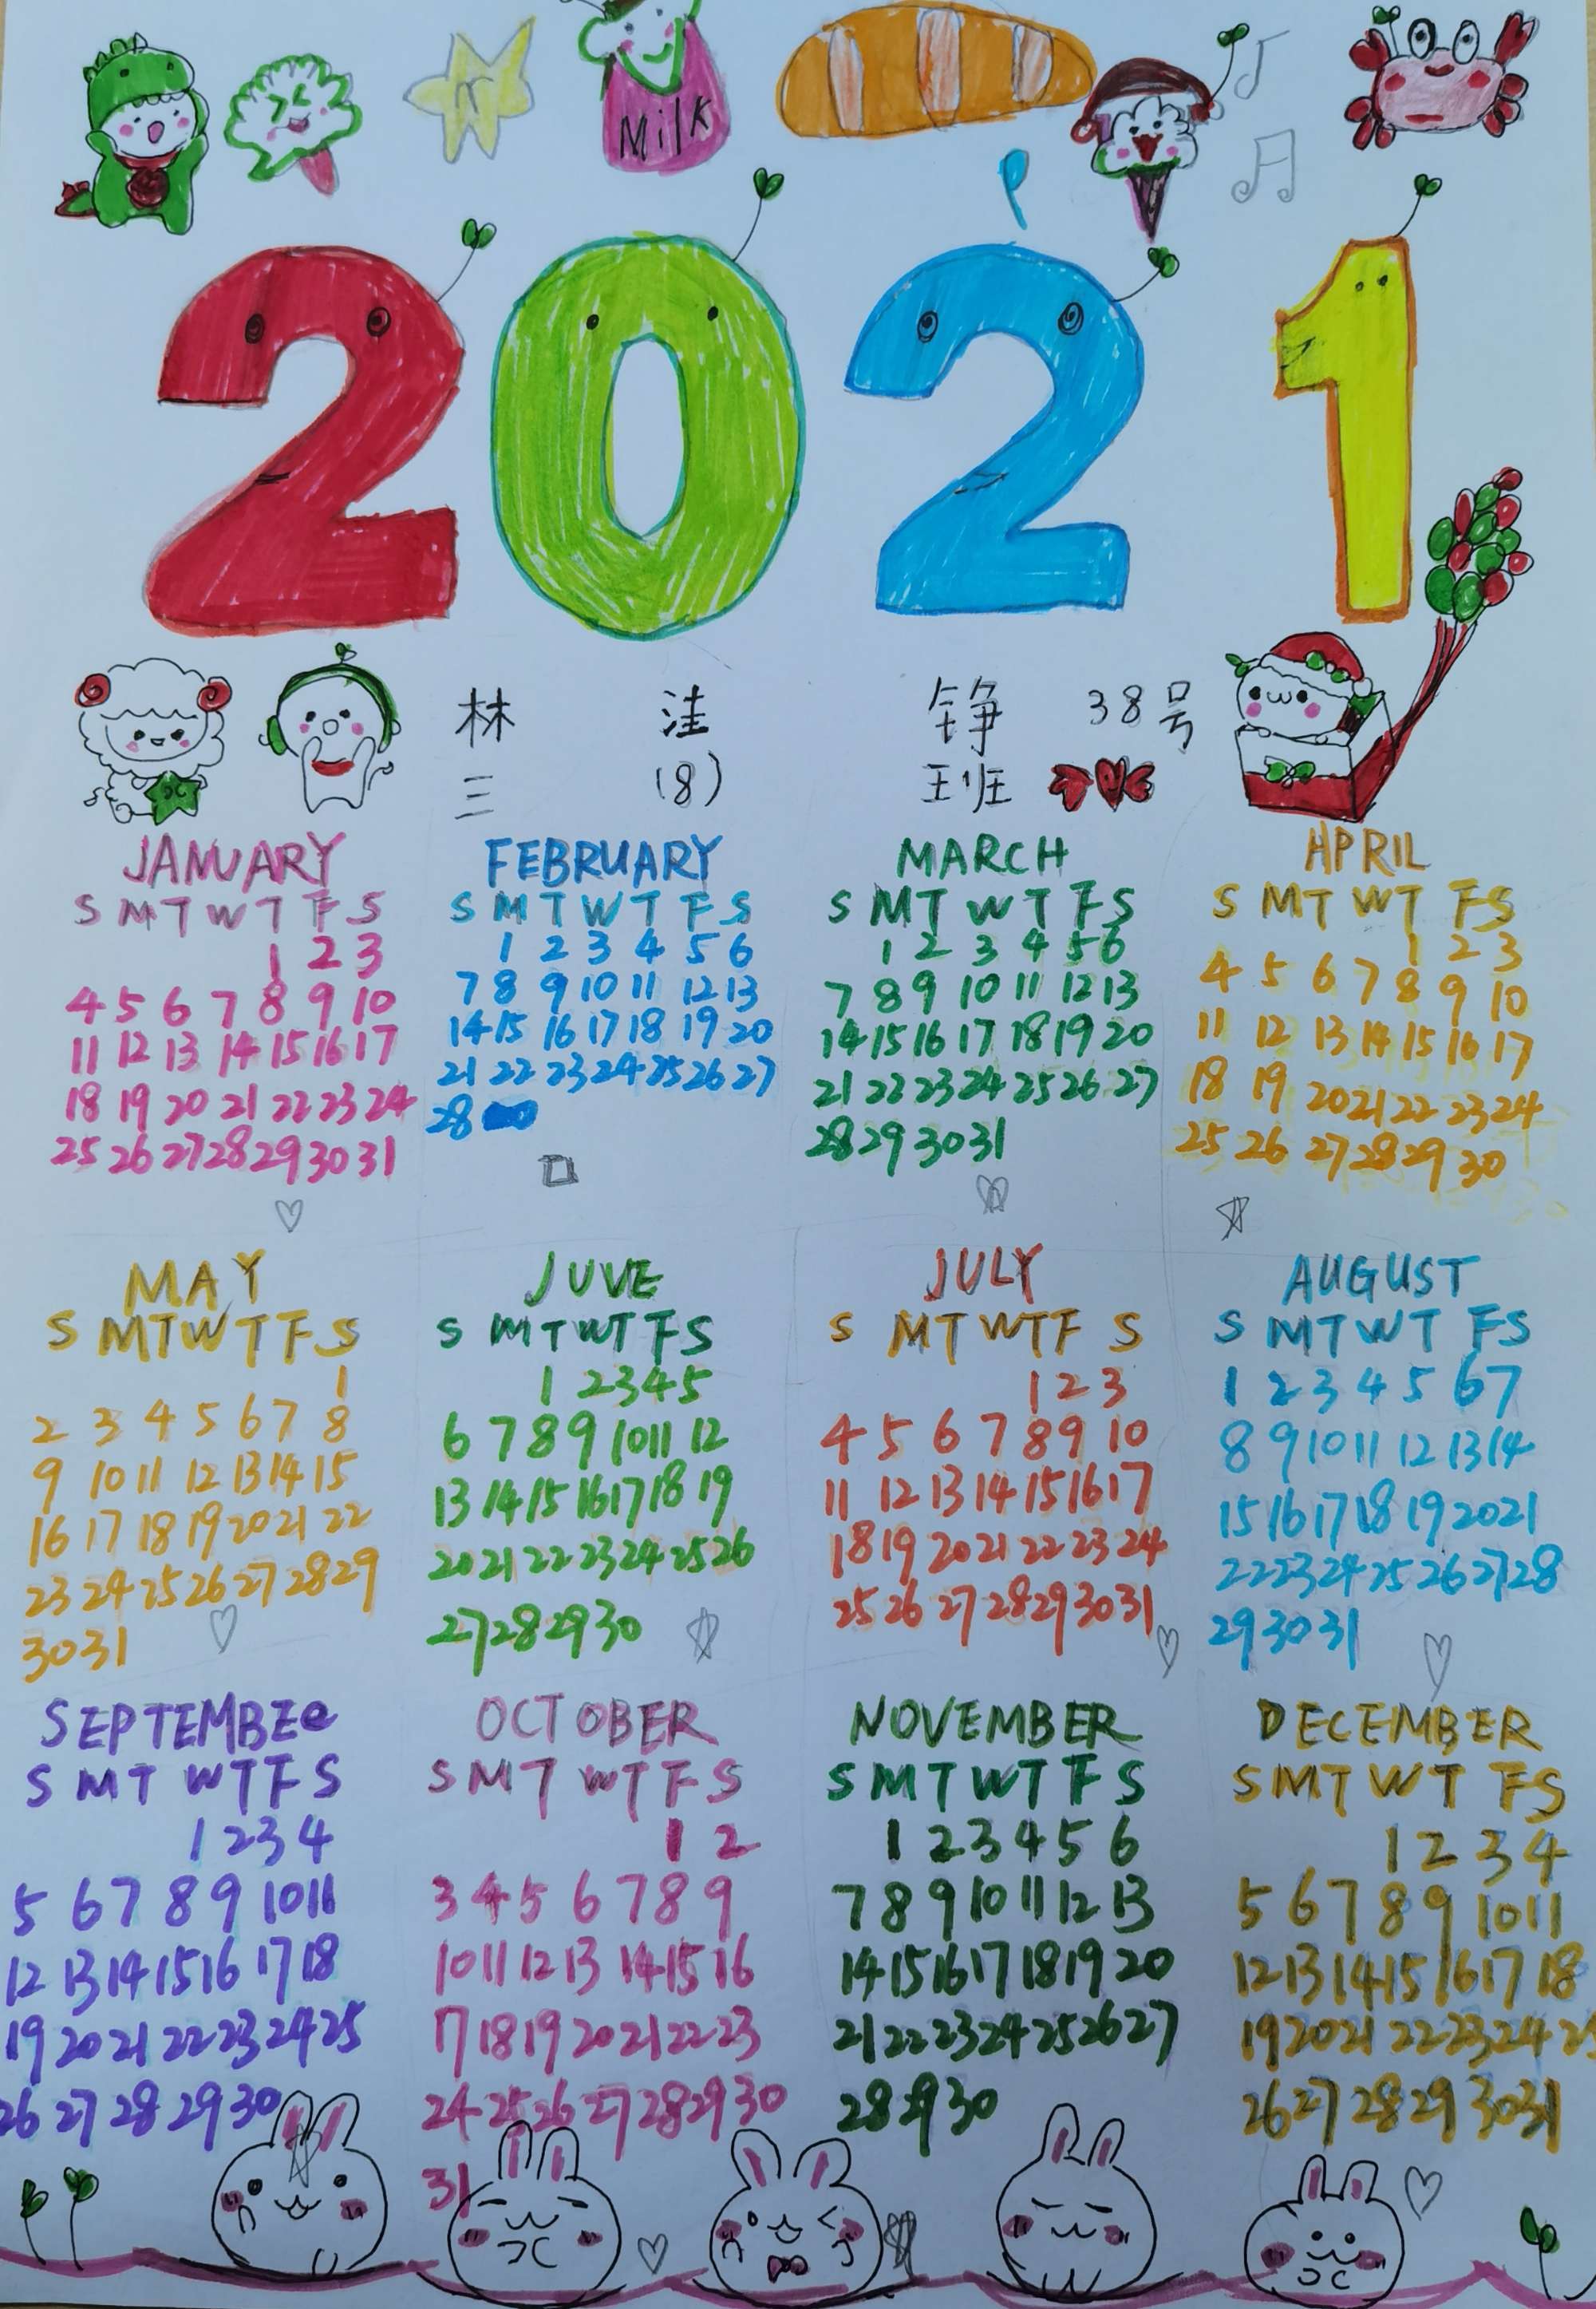 Milk
2021
林 洼 铮 38号
三 (8) 班
JANUARY
S M T W T F S
1 2 3
4 5 6 7 8 9 10
11 12 13 14 15 16 17
18 19 20 21 22 23 24
25 26 27 28 29 30 31
FEBRUARY
S M T W T F S
1 2 3 4 5 6
7 8 9 10 11 12 13
14 15 16 17 18 19 20
21 22 23 24 25 26 27
28
MARCH
S M T W T F S
1 2 3 4 5 6
7 8 9 10 11 12 13
14 15 16 17 18 19 20
21 22 23 24 25 26 27
28 29 30 31
APRIL
S M T W T F S
1 2 3
4 5 6 7 8 9 10
11 12 13 14 15 16 17
18 19 20 21 22 23 24
25 26 27 28 29 30
MAY
S M T W T F S
1
2 3 4 5 6 7 8
9 10 11 12 13 14 15
16 17 18 19 20 21 22
23 24 25 26 27 28 29
30 31
JUVE
S M T W T F S
1 2 3 4 5
6 7 8 9 10 11 12
13 14 15 16 17 18 19
20 21 22 23 24 25 26
27 28 29 30
JULY
S M T W T F S
1 2 3
4 5 6 7 8 9 10
11 12 13 14 15 16 17
18 19 20 21 22 23 24
25 26 27 28 29 30 31
AUGUST
S M T W T F S
1 2 3 4 5 6 7
8 9 10 11 12 13 14
15 16 17 18 19 20 21
22 23 24 25 26 27 28
29 30 31
SEPTEMBEe
S M T W T F S
1 2 3 4
5 6 7 8 9 10 11
12 13 14 15 16 17 18
19 20 21 22 23 24 25
26 27 28 29 30
OCTOBER
S M T W T F S
1 2
3 4 5 6 7 8 9
10 11 12 13 14 15 16
17 18 19 20 21 22 23
24 25 26 27 28 29 30
31
NOVEMBER
S M T W T F S
1 2 3 4 5 6
7 8 9 10 11 12 13
14 15 16 17 18 19 20
21 22 23 24 25 26 27
28 29 30
DECEMBER
S M T W T F S
1 2 3 4
5 6 7 8 9 10 11
12 13 14 15 16 17 18
19 20 21 22 23 24 25
26 27 28 29 30 31